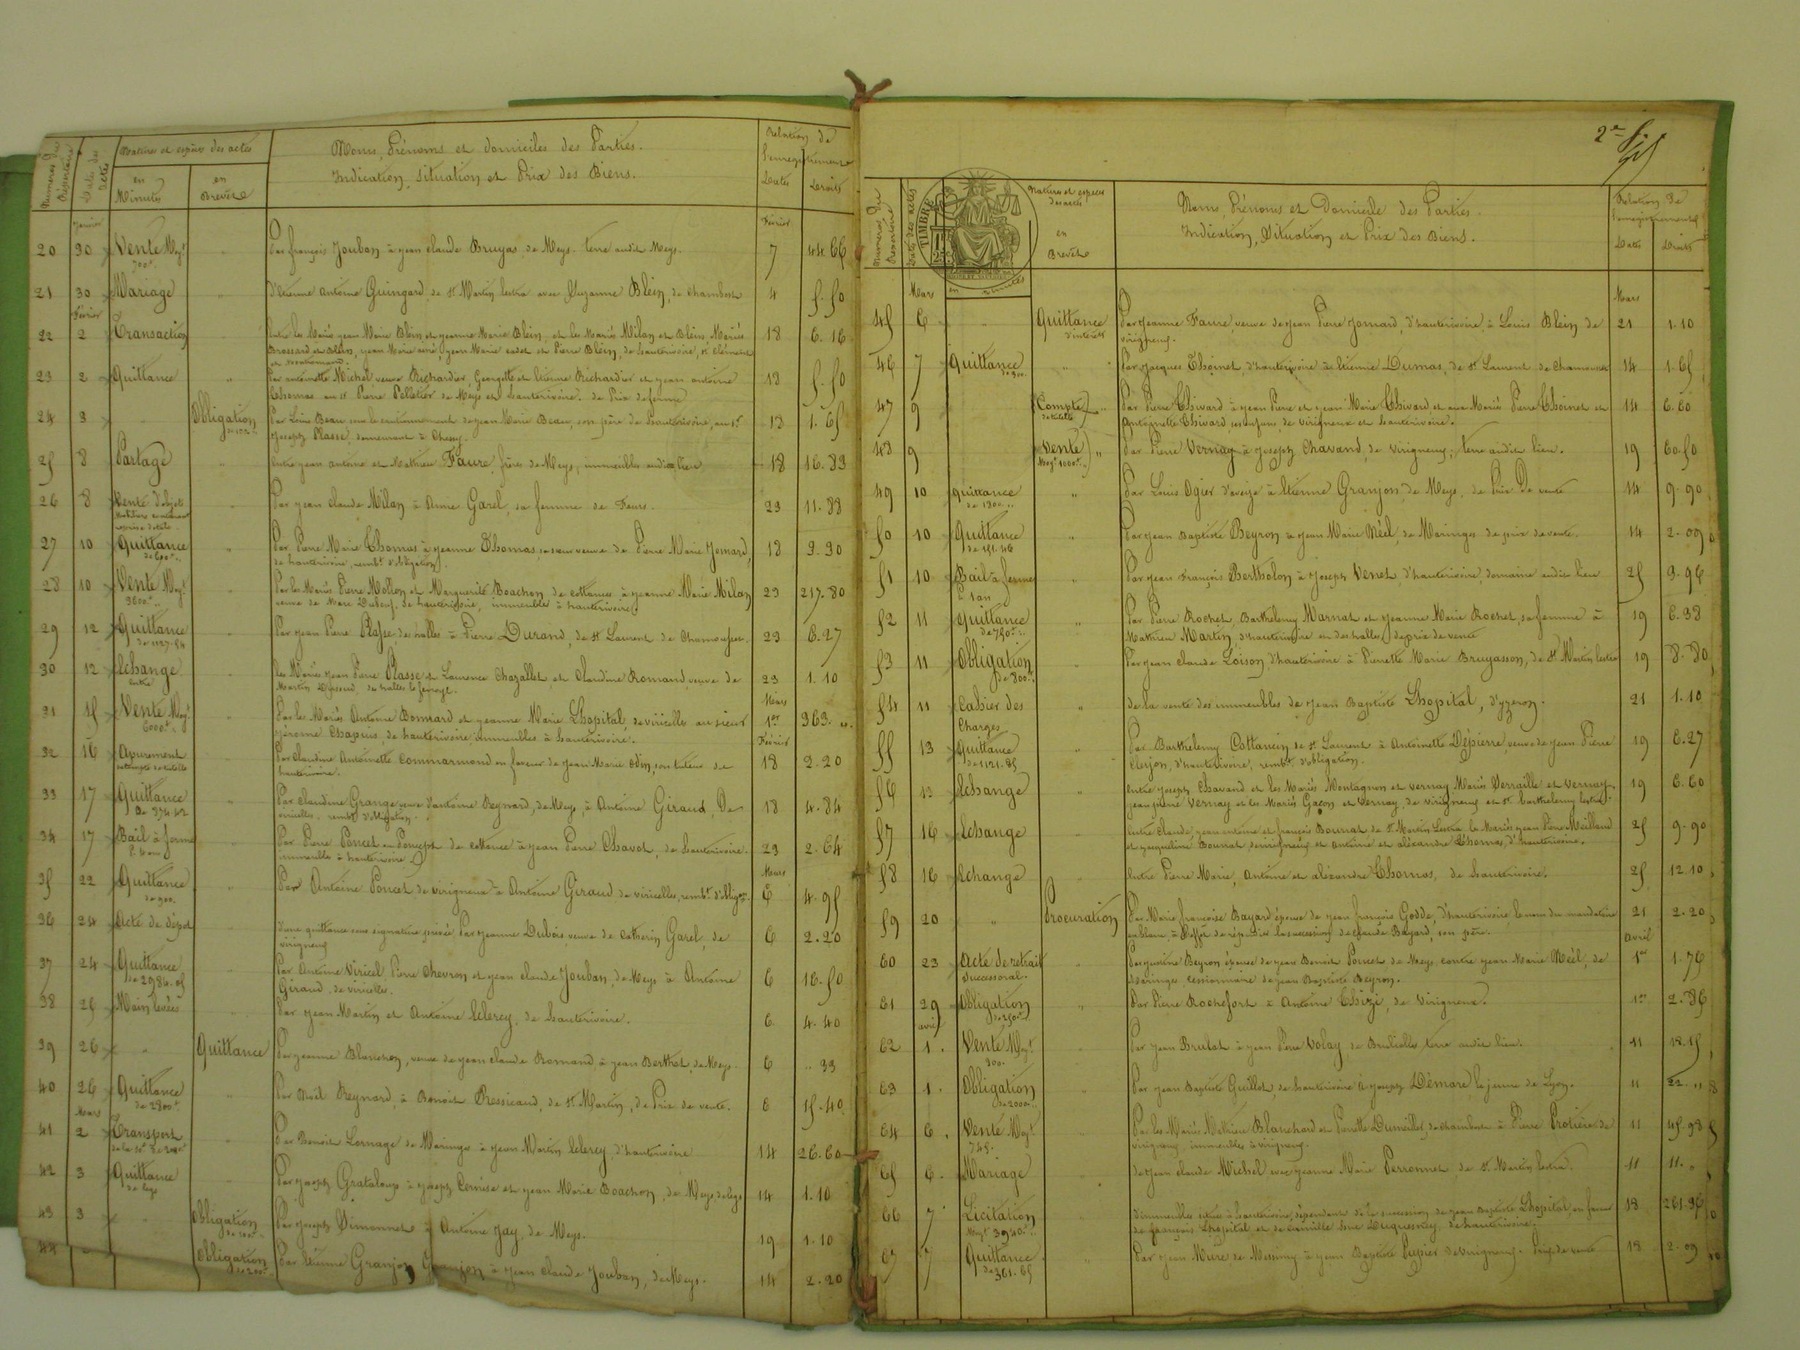 Numéros du Répertoire
Dates des actes
Natures et espèces des actes
en Minutes
en Brevets
Noms, Prénoms et domiciles des Parties.
Indication, situation et Prix des Biens.
Relation de l'enregistrement
Dates
Droits
Janvier
Février
20 30 Vente Moyt 700f " Par françois Jouban à jean claude Bruyas de Meys. terre audit Meys. 7 44 66
21 30 Mariage " d'Etienne Antoine Guingard, de St Martin lestra avec Suzanne Blein, de Chambost 4 5.50
Février
22 2 Transaction Entre les Mariés jean Marie Blein et jeanne Marie Blein, et les Mariés Milan et Blein Mariés 18 6.16
Brossard et Blein, jean Marie ainé, jean Marie cadet et Pierre Blein, de hauterivoire, St Clément
23 2 Quittance " Par antoinette Michel veuve Richardier, Georgette et Etienne Richardier et jean antoine 13 5.50
Thomas au sr Pierre Pelletier de Meys et hauterivoire. de Prix de ferme
24 3 " Obligation Par Louis Beau sous le cautionnement de jean Marie Beau, son père de hauterivoire, au sr 13 1.65
Joseph Plasse, demeurant à Chessy.
25 8 Partage " Entre jean antoine et Mathieu Faure, frères de Meys, immeubles audit lieu 18 16.83
26 8 Vente d'objets mobiliers " Par jean claude Milan à Anne Garel, sa femme de Feurs. 23 11.88
27 10 Quittance de 600f " Par Pierre Marie Thomas à jeanne Thomas, sa soeur veuve de Pierre Marie Jomard, 13 3.30
de hauterivoire, rembt d'obligation.
28 10 Vente Moyt 3600f " Par les Mariés Pierre Mollon et Marguerite Boachon de cottance à jeanne Marie Milan 23 217.80
veuve de Marc Duboeuf, de hauterivoire, immeubles à hauterivoire
29 12 Quittance de 1127.54 " Par jean Pierre Plasse des halles à Pierre Durand, de St Laurent de Chamousset. 23 6.27
30 12 Echange entre " les Mariés jean Pierre Plasse et Laurence Chazallet, et Claudine Romand, veuve de 23 1.10
Martin Dussud, de halles le fenoyl.
Mars
31 15 Vente Moyt 6000f " Par les Mariés Antoine Bonnard et jeanne Marie Lhopital, de viricelles au sieur 1er 363. "
jérome Chapuis, de hauterivoire immeubles à hauterivoire.
Février
32 16 Apurement de compte de tutelle " Par Claudine Antoinette Commarmond en faveur de jean Marie Odin, son tuteur de 18 2.20
hauterivoire.
33 17 Quittance De 874.42 " Par claudine Grange veuve d'antoine Reynard, de Meys, à Antoine Giraud, De 18 4.84
viricelles, rembt d'obligation.
34 17 Bail à ferme " Par Pierre Poncet de cottance à jean Pierre Chavot, de hauterivoire. 23 2.64
immeubles à hauterivoire
Mars
35 22 Quittance de 900. " Par Antoine Poncet de virigneux à Antoine Giraud de viricelles, rembt d'oblign. 6 4.95
36 24 Acte de dépot d'une quittance sous signature privée Par jeanne Dubois, veuve de Catherin Garel, de 6 2.20
virigneux
37 24 Quittance De 2984.05 " Par Antoine Viricel Pierre Chevron et jean claude Jouban, de Meys à Antoine 6 16.50
Giraud, de viricelles.
38 26 Main levées " Par jean Martin et Antoine Leleroy, de hauterivoire. 6 4.40
39 26 " Quittance Par jeanne Blanchon, veuve de jean claude Romand à jean Berthet, de Meys. 6 " 33
40 26 Quittance de 2800f " Par Noël Reynard, à Benoit Pressicaud, de St Martin, de Prix de vente. 6 15.40
Mars
41 2 Transport " Par Benoit Lornage de Maringes à jean Martin leleroy d'hauterivoire 14 26.60
42 3 Quittance de legs " Par joseph Grataloup à joseph Cornise et jean Marie Boachon, de Meys de legs 14 1.10
43 3 " Obligation de 100f Par joseph Simonnet à Antoine Jay, de Meys. 19 1.10
44 " Obligation de 200f Par Etienne Granjon Granjon à jean claude Jouban, de Meys. 14 2.20
2e
TIMBRE
Numéros du Répertoire
Dates des actes
Natures et espèces des actes
en minutes
en Brevets
Noms, Prénoms et Domicile des Parties.
Indication, Situation et Prix des Biens.
Relation de l'enregistrement
Dates
Droits
Mars
Mars
45 6 " Quittance d'intérêts Par jeanne Faure veuve de jean Pierre Jomard, d'hauterivoire, à Louis Blein de 21 1.10
virigneux.
46 7 Quittance de 300. " Par jacques Thoinet, d'hauterivoire à Etienne Dumas, de St Laurent de Chamousset 14 1.65
47 9 Compte de tutelle " Par Pierre Thivard à jean Pierre et jean Marie Thivard et aux Mariés Pierre Thoinet et 14 6.60
Antoinette Thivard, ses enfans, de Virigneux et hauterivoire.
48 9 Vente Moyt 1000f " Par Pierre Vernay à joseph Chavand, de Virigneux, terre audit lieu. 19 60.50
49 10 Quittance de 1800. " Par Louis Ogier d'aveize à Etienne Granjon de Meys, de Prix De vente 14 9.90
50 10 Quittance de 351.46 " Par jean Baptiste Beyron à jean Marie Néel, de Maringes de prix de vente. 14 2.09
51 10 Bail à ferme " Par jean françois Bertholon à joseph Venet, d'hauterivoire, domaine audit lieu 25 3.96
52 11 Quittance de 750f " Par Pierre Rochet, Barthelemy Marnat et jeanne Marie Rochet, sa femme à 19 6.38
Mathieu Martin d'hauterivoire et des halles, de prix de vente
53 11 Obligation de 800f " Par jean claude Loison, d'hauterivoire à Pierrette Marie Bruyasson, de St Martin lestra 19 8.80
54 11 Cahier des Charges " de la vente des immeubles de jean Baptiste Lhopital, d'yzeron. 21 1.10
55 13 Quittance de 1121.85 " Par Barthelemy Cottancin de St Laurent à Antoinette Dépierre, veuve de jean Pierre 19 6.27
Clerjon, d'hauterivoire, rembt d'obligation.
56 13 Echange " entre joseph Chavand et les Mariés Montagnon et Vernay Mariés Serraille et Vernay. 19 6.60
jean pierre Vernay et les Mariés Gacon et Vernay, de virigneux et St barthelemy lestra.
57 16 Echange " entre Claude, jean antoine et françois Bounat de St Martin Lestra les Mariés jean Pierre Meilland 25 9.90
et jacqueline Bounat de virigneux et antoine et alexandre Thomas, d'hauterivoire.
58 16 Echange " Entre Pierre Marie, Antoine et alexandre Thomas, de hauterivoire. 25 12.10
59 20 " Procuration Par Marie françoise Bayard épouse de jean françois Godde, d'hauterivoire, le nom du mandataire 21 2.20
en blanc, à l'effet de répudier la succession de claude Bayard, son père.
Avril
60 23 Acte de retrait successoral. Par justine Beyron épouse de jean Benoit Poncet de Meys contre jean Marie Néel, de 1er 1.76
Maringes cessionnaire de jean Baptiste Beyron.
61 29 Obligation de 250f " Par Pierre Rochefort à Antoine Thizi, de Virigneux. 1er 2.86
avril
62 1. Vente Moyt 300. Par jean Brulat à jean Pierre Volay de Brullioles, terre audit lieu. 11 18.15
63 1. Obligation de 2000. " Par jean Baptiste Guillot, de hauterivoire à joseph Démare, le jeune de Lyon. 11 22. "
64 6. Vente Moyt 745. " Par les Mariés Mathieu Blanchard et Pierrette Dumillet, de Chambost à Pierre Protière de 11 45.98
virigneux immeubles à virigneux.
65 6. Mariage de jean claude Michel avec jeanne Marie Perronnet, de St Martin lestra. 11 11. "
66 7 Licitation Moyt 3940f d'immeubles situés à hauterivoire, dépendant de la succession de jean Baptiste Lhopital, en faveur 18 261.36
de françois Lhopital et de camille Duquesnoy, de hauterivoire.
67 7 Quittance de 361.65 " Par jean Mure de Messimy à jean Baptiste Pupier de Virigneux. Prix de vente 18 2.09